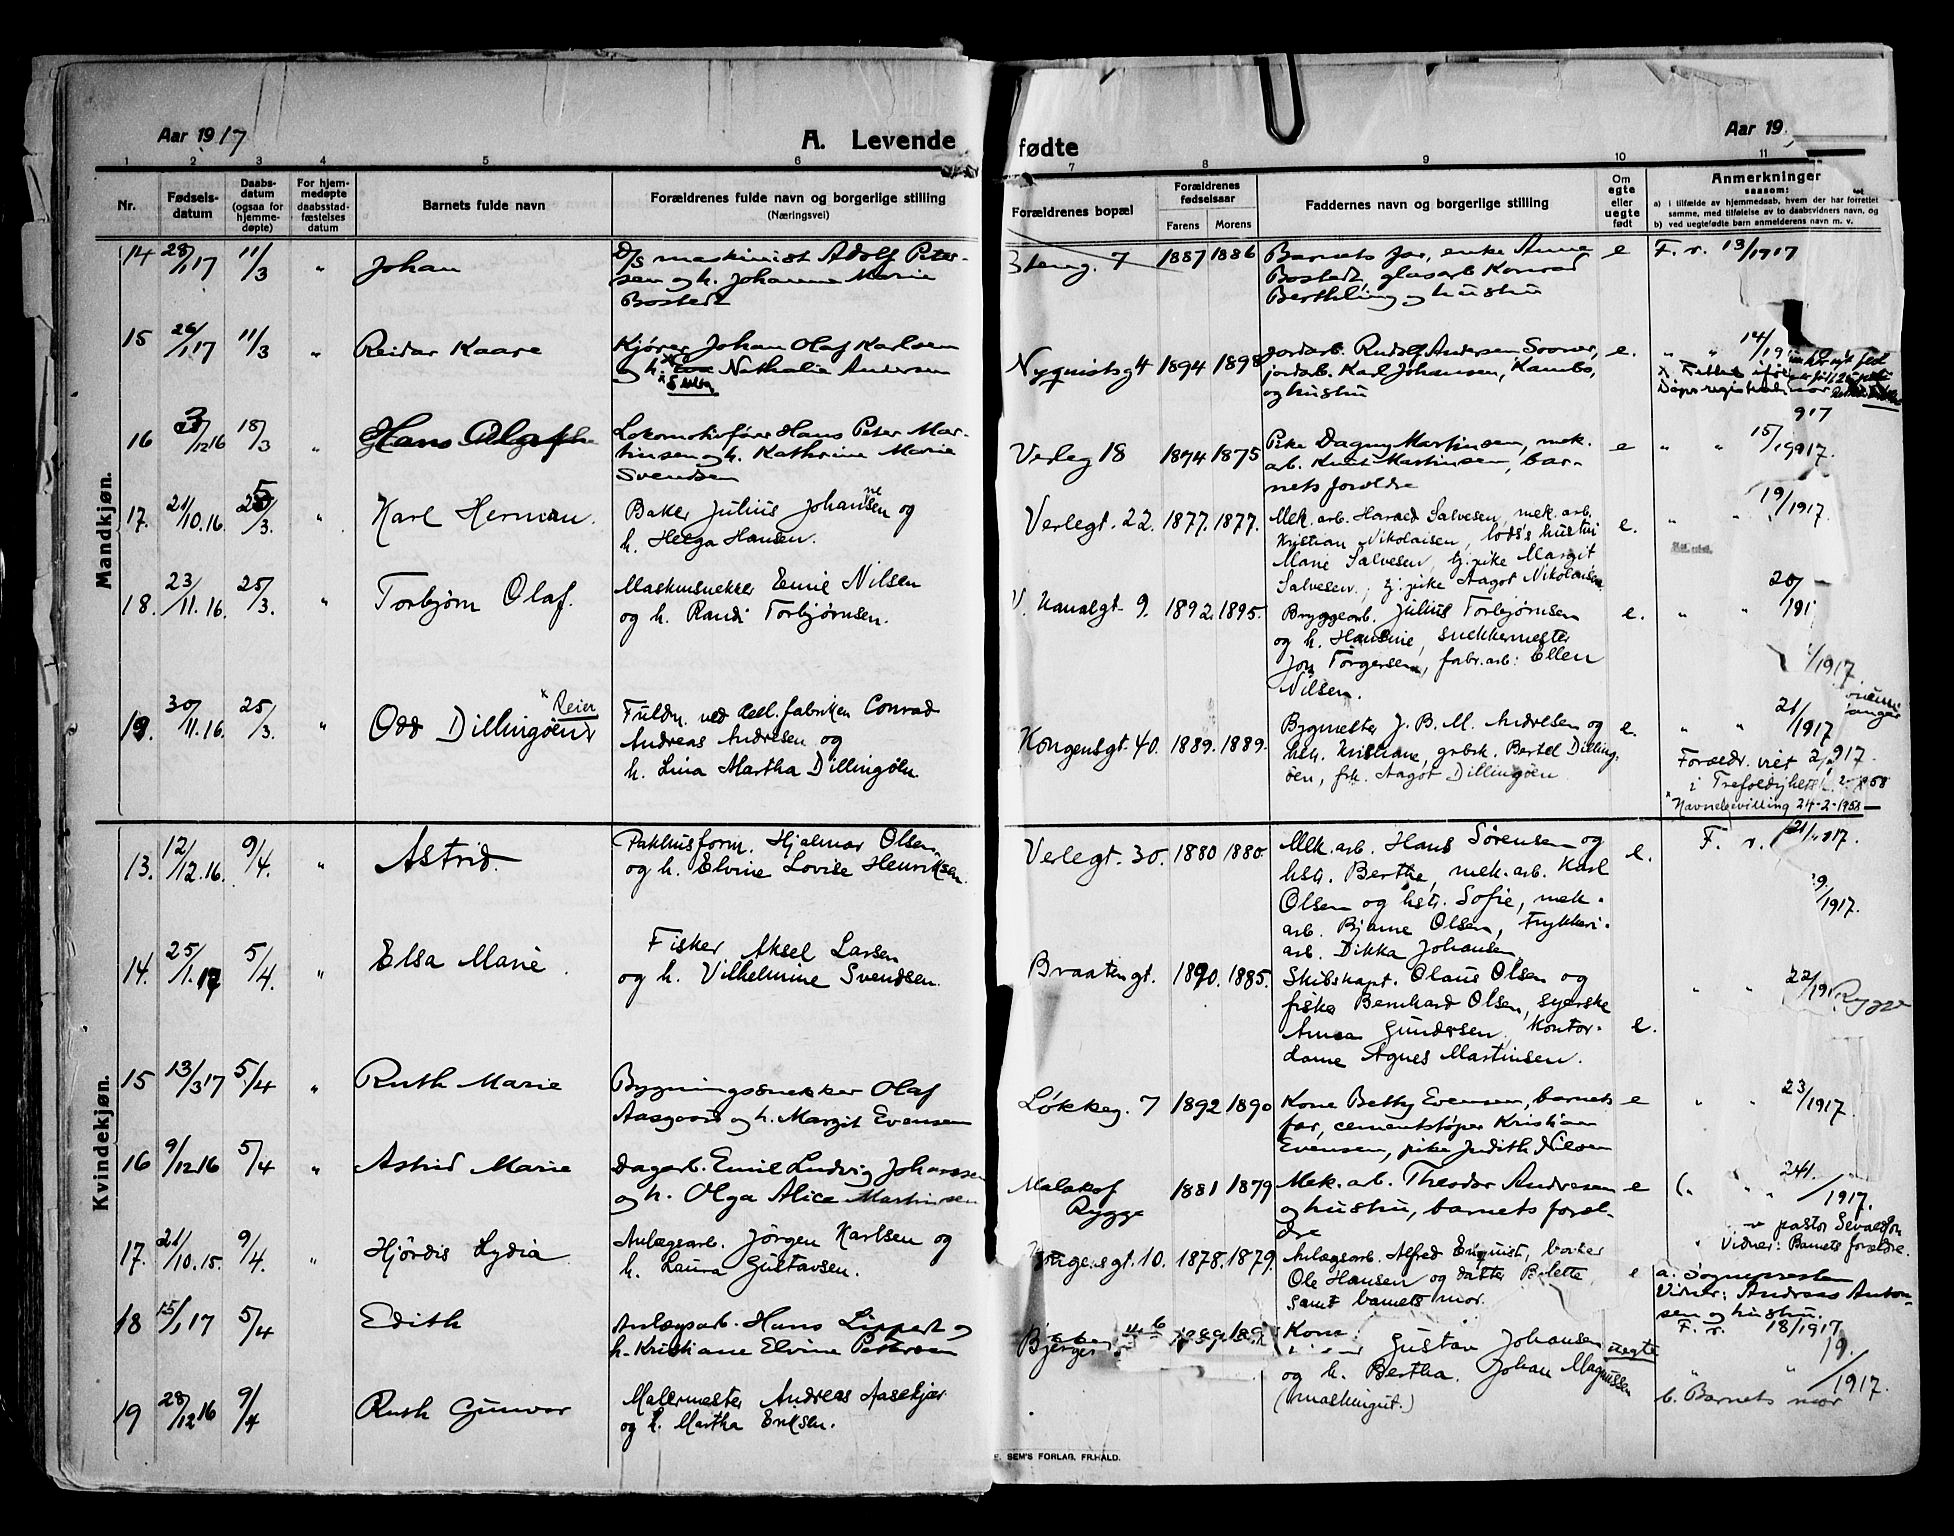 Aar 1917
A. Levende
1 2 3 4 5 6
Nr.
Fødselsdatum
Daabsdatum (ogsaa for hjemmedøpte)
For hjemmedøpte daabsstadfæstelses datum
Barnets fulde navn
Forældrenes fulde navn og borgerlige stilling
(Næringsvei)
Mandkjøn.
14 28/1 17 11/3 „ Johan D/s maskinist Adolf Peter-
sen og h. Johanne Marie
Bostedt
15 26/1 17 11/3 „ Reidar Kaare Kjører Johan Olaf Karlsen
og h. Nathalie Andersen
16 12 16 18/3 „ Hans Lokomotivfører Hans Peter Mar-
tinsen og h. Kathrine Marie
Svendsen
17. 21/10.16 25/3. „ Karl Herman. Baker Julius Johansen og
h. Helga Hansen.
18. 23/11.16. 25/3. „ Torbjørn Olaf. Maskinsnekker Emil Nilsen
og h. Randi Torbjørnsen.
× Reier
19. 30/11.16. 25/3. „ Odd Dillingøen Fuldm. ved cell.fabriken Conrad
Andreas Andresen og
h. Lina Martha Dillingøen
Kvindekjøn.
13. 12/12.16. 9/4. „ Astrid. Pakhusform. Hjalmar Olsen
og h. Elvine Lovise Henriksen.
14. 25/1.17 5/4. „ Elsa Marie. Fisker Aksel Larsen
og h. Vilhelmine Svendsen.
15 13/3 17 5/4 „ Ruth Marie Bygningssnekker Olaf
Aasgaard og h. Margit Evensen
16 9/12 16 5/4 „ Astrid Marie Dagarb. Emil Ludvig Johansen
og h. Olga Alice Martinsen
17. 21/10.15. 9/4. „ Hjördis Lydia Anlægsarb. Jørgen Karlsen og
h. Laura Gustavsen.
18 15/1 17 5/4 Edith Anlægsarb. Hans Lippert og
h. Kristiane Elvine Petersen
19 28/12 16 9/4 Ruth Gunvor Malermester Andreas Aasekjær
og h. Martha Eriksen.
fødte
Aar 19
7 8 9 10 11
Forældrenes bopæl
Forældrenes fødselsaar
Farens Morens
Faddernes navn og borgerlige stilling
Om egte eller uegte født
Anmerkninger
saasom:
a) i tilfælde av hjemmedaab, hvem der har forrettet
samme, med tilføielse av to daabsvidners navn, og
b) ved uegtefødte barn anmelderens navn m. v.
Steng. 7 1887 1886 Barnets far, enke Anne e F. r. 13/1917
Bostedt, glasarb Konrad
Berthling og hustru
Nyquistsg 4 1894 1898 Jordarb. Rudolf Andersen Soover, e. „ „ 14/19
jordarb. Karl Johansen, Kambo,
og hustru
917
Verleg 18 1874 1875 Pike Dagny Martinsen, mek. e „ „ 15/1917.
arb. Knut Martinsen, bar-
nets forældre
Verlegt. 22. 1877. 1877. Mek. arb. Harald Salvesen, mek. arb. e. „ 19/1917.
Kristian Nikolaisen, lods's hustru
Marie Salvesen, tj. pike Margit
Salvesen, tj. pike Aagot Nikolaisen
V. Kanalgt. 9. 1892. 1895. Bryggearb. Julius Torbjørnsen e. „ „ 20/191
og h. Hansine, snekkermester
Jon Torgersen, fabr. arb. Ellen
Nilsen.
/1917.
Kongensgt. 40. 1889. 1889. Bygmester J. B. M. Andresen og e. „ „ 21/1917
Kristiane, grbsk. Bertel Dilling-
øen, frk. Aagot Dillingøen
Forældr. viet
i Trefoldighetsk.
× Navnebevilling 24-2-1958
Verlegt. 30. 1880 1880. Mek. arb. Hans Sørensen og e. F. r. 21/1917.
hstr. Berthe, mek. arb. Karl
Olsen og hstr. Sofie, mek.
arb. Bjarne Olsen, Trykkeri-
arb. Dikka Johansen
/1917.
Braatengt. 1890. 1885. Skibskapt. Olaus Olsen og e. „ „ 22/19 Rygge
fisker Bernhard Olsen, syerske
Anna Gundersen, Kontor-
dame Agnes Martinsen.
Løkkeg. 7 1892 1890 Kone Betty Evensen, barnets e „ „ 23/1917.
far, cementstøper Kristian
Evensen, pike Judith Nilsen
Malakof 1881 1879 Mek. arb. Theodor Andresen e „ „ 24/1917.
Rygge og hustru, barnets foræl-
dre
pastor Sevaldson
Vidner: Barnets forældre.
Kongensgt. 10. 1878. 1879. Anlægsarb. Alfred Enquist, baker e a. Sogneprest
Ole Hansen og datter Bolette,
samt barnets mor.
Vidner: Andreas Anton-
sen og hustru.
F. r. 18/1917
Kone Gustav Johansen uegte „ „ 19./1917.
og h. Bertha. Johan Magnussen
(maskingut.)
b. Barnets mor
SEM'S FORLAG. FR.HALD.